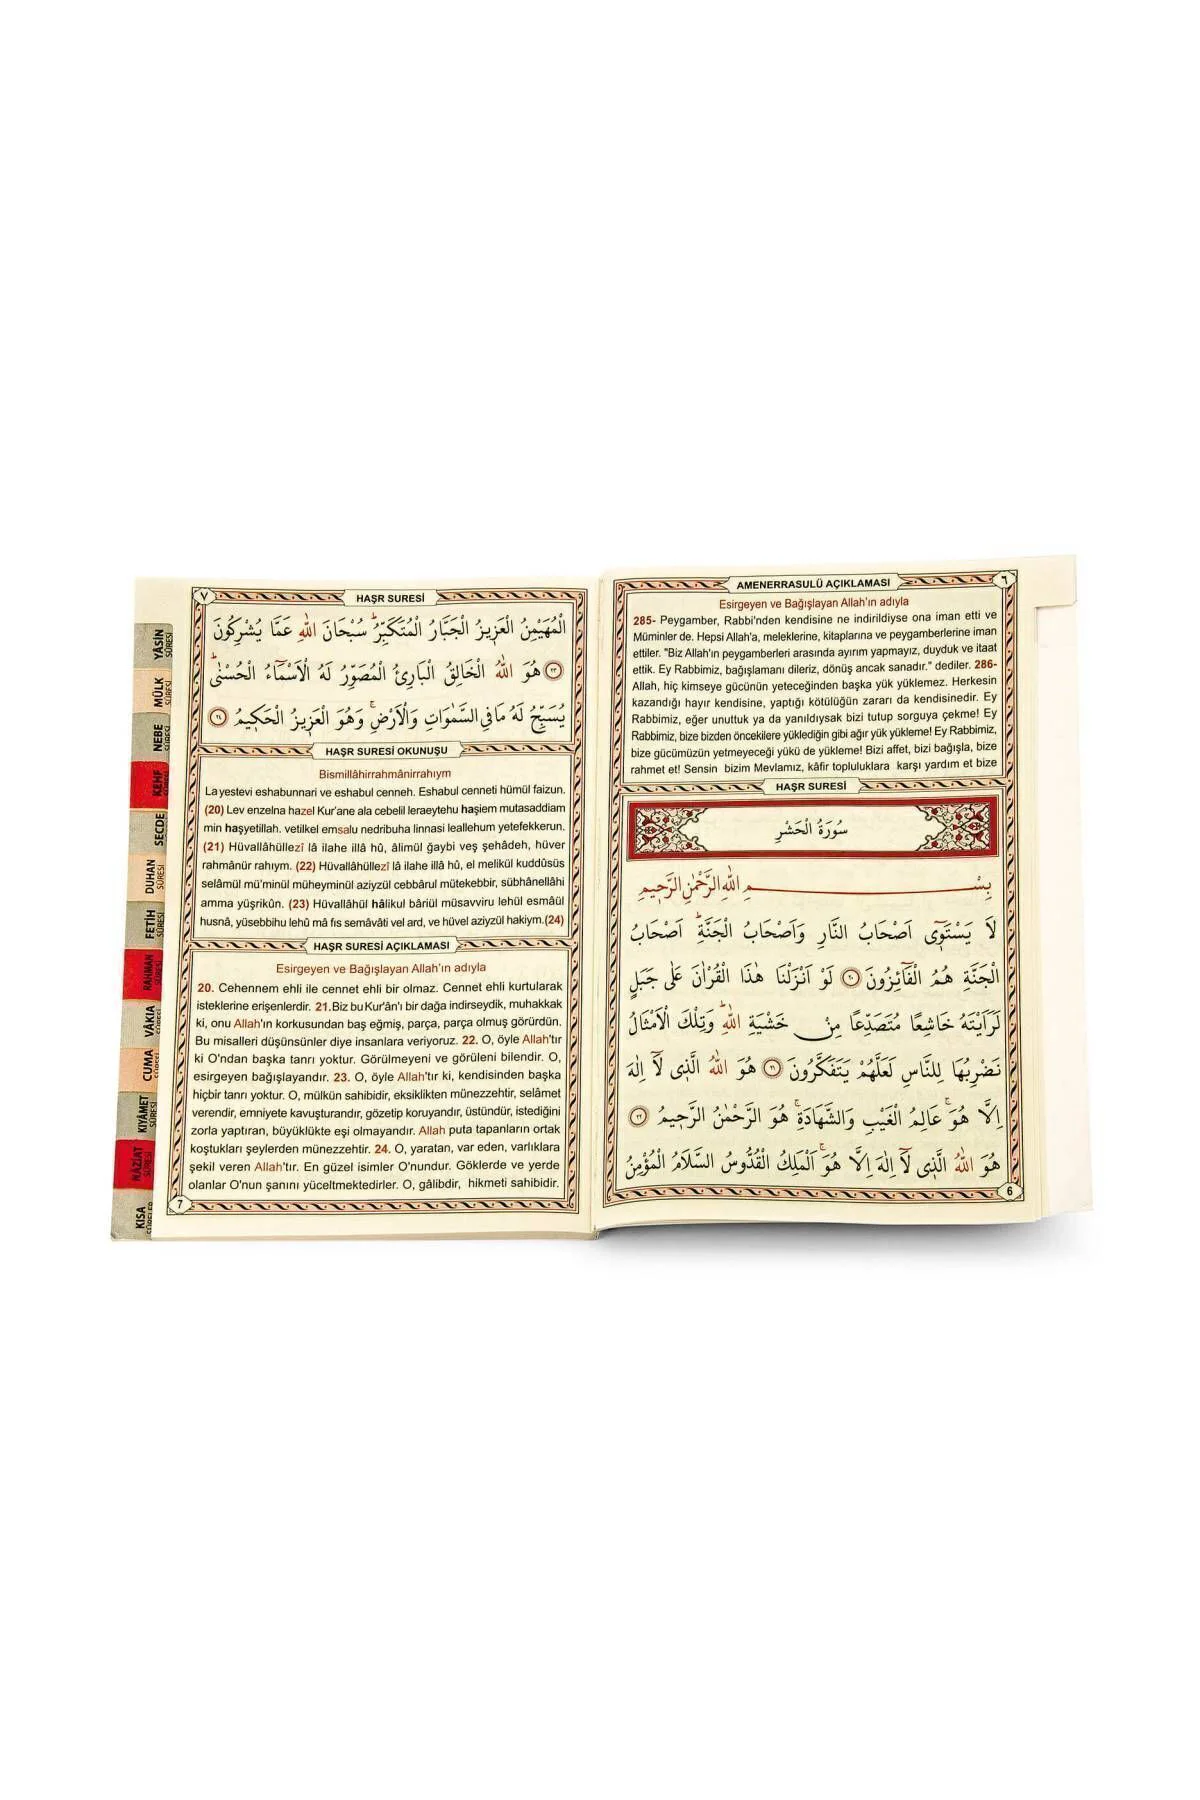 AMENERRASULÜ AÇIKLAMASI
٦
Esirgeyen ve Bağışlayan Allah'ın adıyla
285- Peygamber, Rabbi'nden kendisine ne indirildiyse ona iman etti ve
Müminler de. Hepsi Allah'a, meleklerine, kitaplarına ve peygamberlerine iman
ettiler. "Biz Allah'ın peygamberleri arasında ayırım yapmayız, duyduk ve itaat
ettik. Ey Rabbimiz, bağışlamanı dileriz, dönüş ancak sanadır." dediler. 286-
Allah, hiç kimseye gücünün yeteceğinden başka yük yüklemez. Herkesin
kazandığı hayır kendisine, yaptığı kötülüğün zararı da kendisinedir. Ey
Rabbimiz, eğer unuttuk ya da yanıldıysak bizi tutup sorguya çekme! Ey
Rabbimiz, bize bizden öncekilere yüklediğin gibi ağır yük yükleme! Ey Rabbimiz,
bize gücümüzün yetmeyeceği yükü de yükleme! Bizi affet, bizi bağışla, bize
rahmet et! Sensin bizim Mevlamız, kâfir topluluklara karşı yardım et bize
HAŞR SURESİ
سُورَةُ الْحَشْرِ
بِسْمِ اللّٰهِ الرَّحْمٰنِ الرَّحِيمِ
لَا يَسْتَوٖٓى اَصْحَابُ النَّارِ وَاَصْحَابُ الْجَنَّةِؕ اَصْحَابُ
الْجَنَّةِ هُمُ الْفَٓائِزُونَ ﴿٢٠﴾ لَوْ اَنْزَلْنَا هٰذَا الْقُرْاٰنَ عَلٰى جَبَلٍ
لَرَاَيْتَهُ خَاشِعًا مُتَصَدِّعًا مِنْ خَشْيَةِ اللّٰهِؕ وَتِلْكَ الْاَمْثَالُ
نَضْرِبُهَا لِلنَّاسِ لَعَلَّهُمْ يَتَفَكَّرُونَ ﴿٢١﴾ هُوَ اللّٰهُ الَّذٖى لَٓا اِلٰهَ
اِلَّا هُوَۚ عَالِمُ الْغَيْبِ وَالشَّهَادَةِۚ هُوَ الرَّحْمٰنُ الرَّحٖيمُ ﴿٢٢﴾
هُوَ اللّٰهُ الَّذٖى لَٓا اِلٰهَ اِلَّا هُوَۚ اَلْمَلِكُ الْقُدُّوسُ السَّلَامُ الْمُؤْمِنُ
6
٧
HAŞR SURESİ
الْمُهَيْمِنُ الْعَزٖيزُ الْجَبَّارُ الْمُتَكَبِّرُؕ سُبْحَانَ اللّٰهِ عَمَّا يُشْرِكُونَ
﴿٢٣﴾ هُوَ اللّٰهُ الْخَالِقُ الْبَارِئُ الْمُصَوِّرُ لَهُ الْاَسْمَٓاءُ الْحُسْنٰىؕ
يُسَبِّحُ لَهُ مَا فِى السَّمٰوَاتِ وَالْاَرْضِۚ وَهُوَ الْعَزٖيزُ الْحَكٖيمُ ﴿٢٤﴾
HAŞR SURESİ OKUNUŞU
Bismillâhirrahmânirrahıym
La yestevi eshabunnari ve eshabul cenneh. Eshabul cenneti hümül faizun.
(20) Lev enzelna hazel Kur'ane ala cebelil leraeytehu haşiem mutasaddiam
min haşyetillah. vetilkel emsalu nedribuha linnasi leallehum yetefekkerun.
(21) Hüvallâhüllezî lâ ilahe illâ hû, âlimül ğaybi veş şehâdeh, hüver
rahmânür rahıym. (22) Hüvallâhüllezî lâ ilahe illâ hû, el melikül kuddûsüs
selâmül mü'minül müheyminül aziyzül cebbârul mütekebbir, sübhânellâhi
amma yüşrikûn. (23) Hüvallâhül hâlikul bâriül müsavviru lehül esmâül
husnâ, yüsebbihu lehû mâ fis semâvâti vel ard, ve hüvel aziyzül hakiym.(24)
HAŞR SURESİ AÇIKLAMASI
Esirgeyen ve Bağışlayan Allah'ın adıyla
20. Cehennem ehli ile cennet ehli bir olmaz. Cennet ehli kurtularak
isteklerine erişenlerdir. 21.Biz bu Kur'ân'ı bir dağa indirseydik, muhakkak
ki, onu Allah'ın korkusundan baş eğmiş, parça, parça olmuş görürdün.
Bu misalleri düşünsünler diye insanlara veriyoruz. 22. O, öyle Allah'tır
ki O'ndan başka tanrı yoktur. Görülmeyeni ve görüleni bilendir. O,
esirgeyen bağışlayandır. 23. O, öyle Allah'tır ki, kendisinden başka
hiçbir tanrı yoktur. O, mülkün sahibidir, eksiklikten münezzehtir, selâmet
verendir, emniyete kavuşturandır, gözetip koruyandır, üstündür, istediğini
zorla yaptıran, büyüklükte eşi olmayandır. Allah puta tapanların ortak
koştukları şeylerden münezzehtir. 24. O, yaratan, var eden, varlıklara
şekil veren Allah'tır. En güzel isimler O'nundur. Göklerde ve yerde
olanlar O'nun şanını yüceltmektedirler. O, gâlibdir, hikmeti sahibidir.
7
YÂSİN SÛRESİ
MÜLK SÛRESİ
NEBE SÛRESİ
KEHF
SECDE
DUHAN SÛRESİ
FETİH SÛRESİ
RAHMAN SÛRESİ
VÂKIA SÛRESİ
CUMA SÛRESİ
KIYÂMET SÛRESİ
NÂZİAT SÛRESİ
KISA SÛRELER